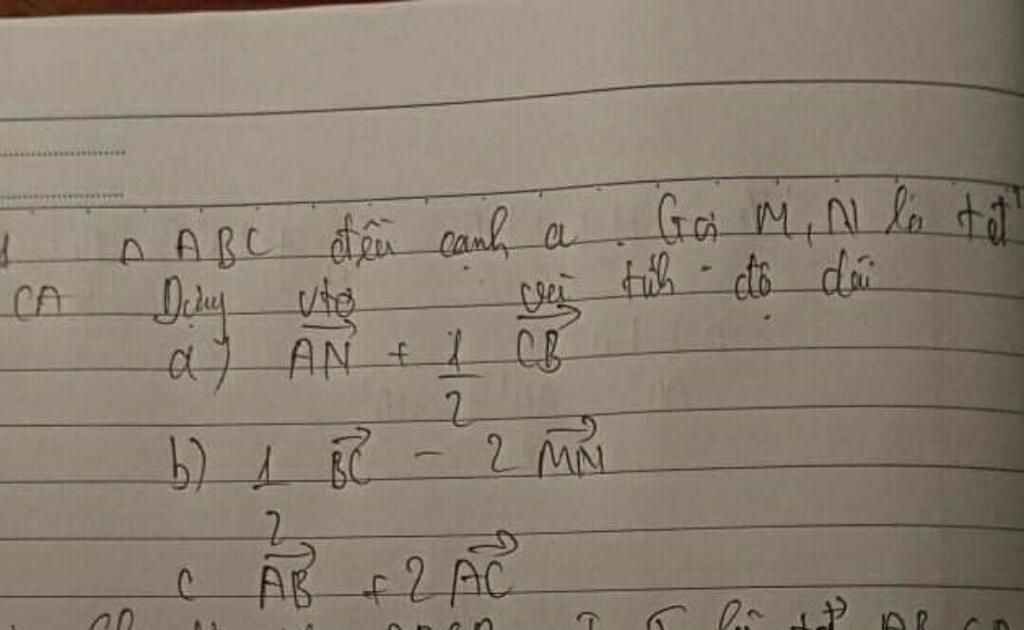 1 Δ ABC đều cạnh a. Gọi M, N là tđ
CA Dựng vtơ và tính độ dài
a) \overrightarrow{AN} + \frac{1}{2} \overrightarrow{CB}
b) \frac{1}{2} \overrightarrow{BC} - 2 \overrightarrow{MN}
c \overrightarrow{AB} + 2 \overrightarrow{AC}